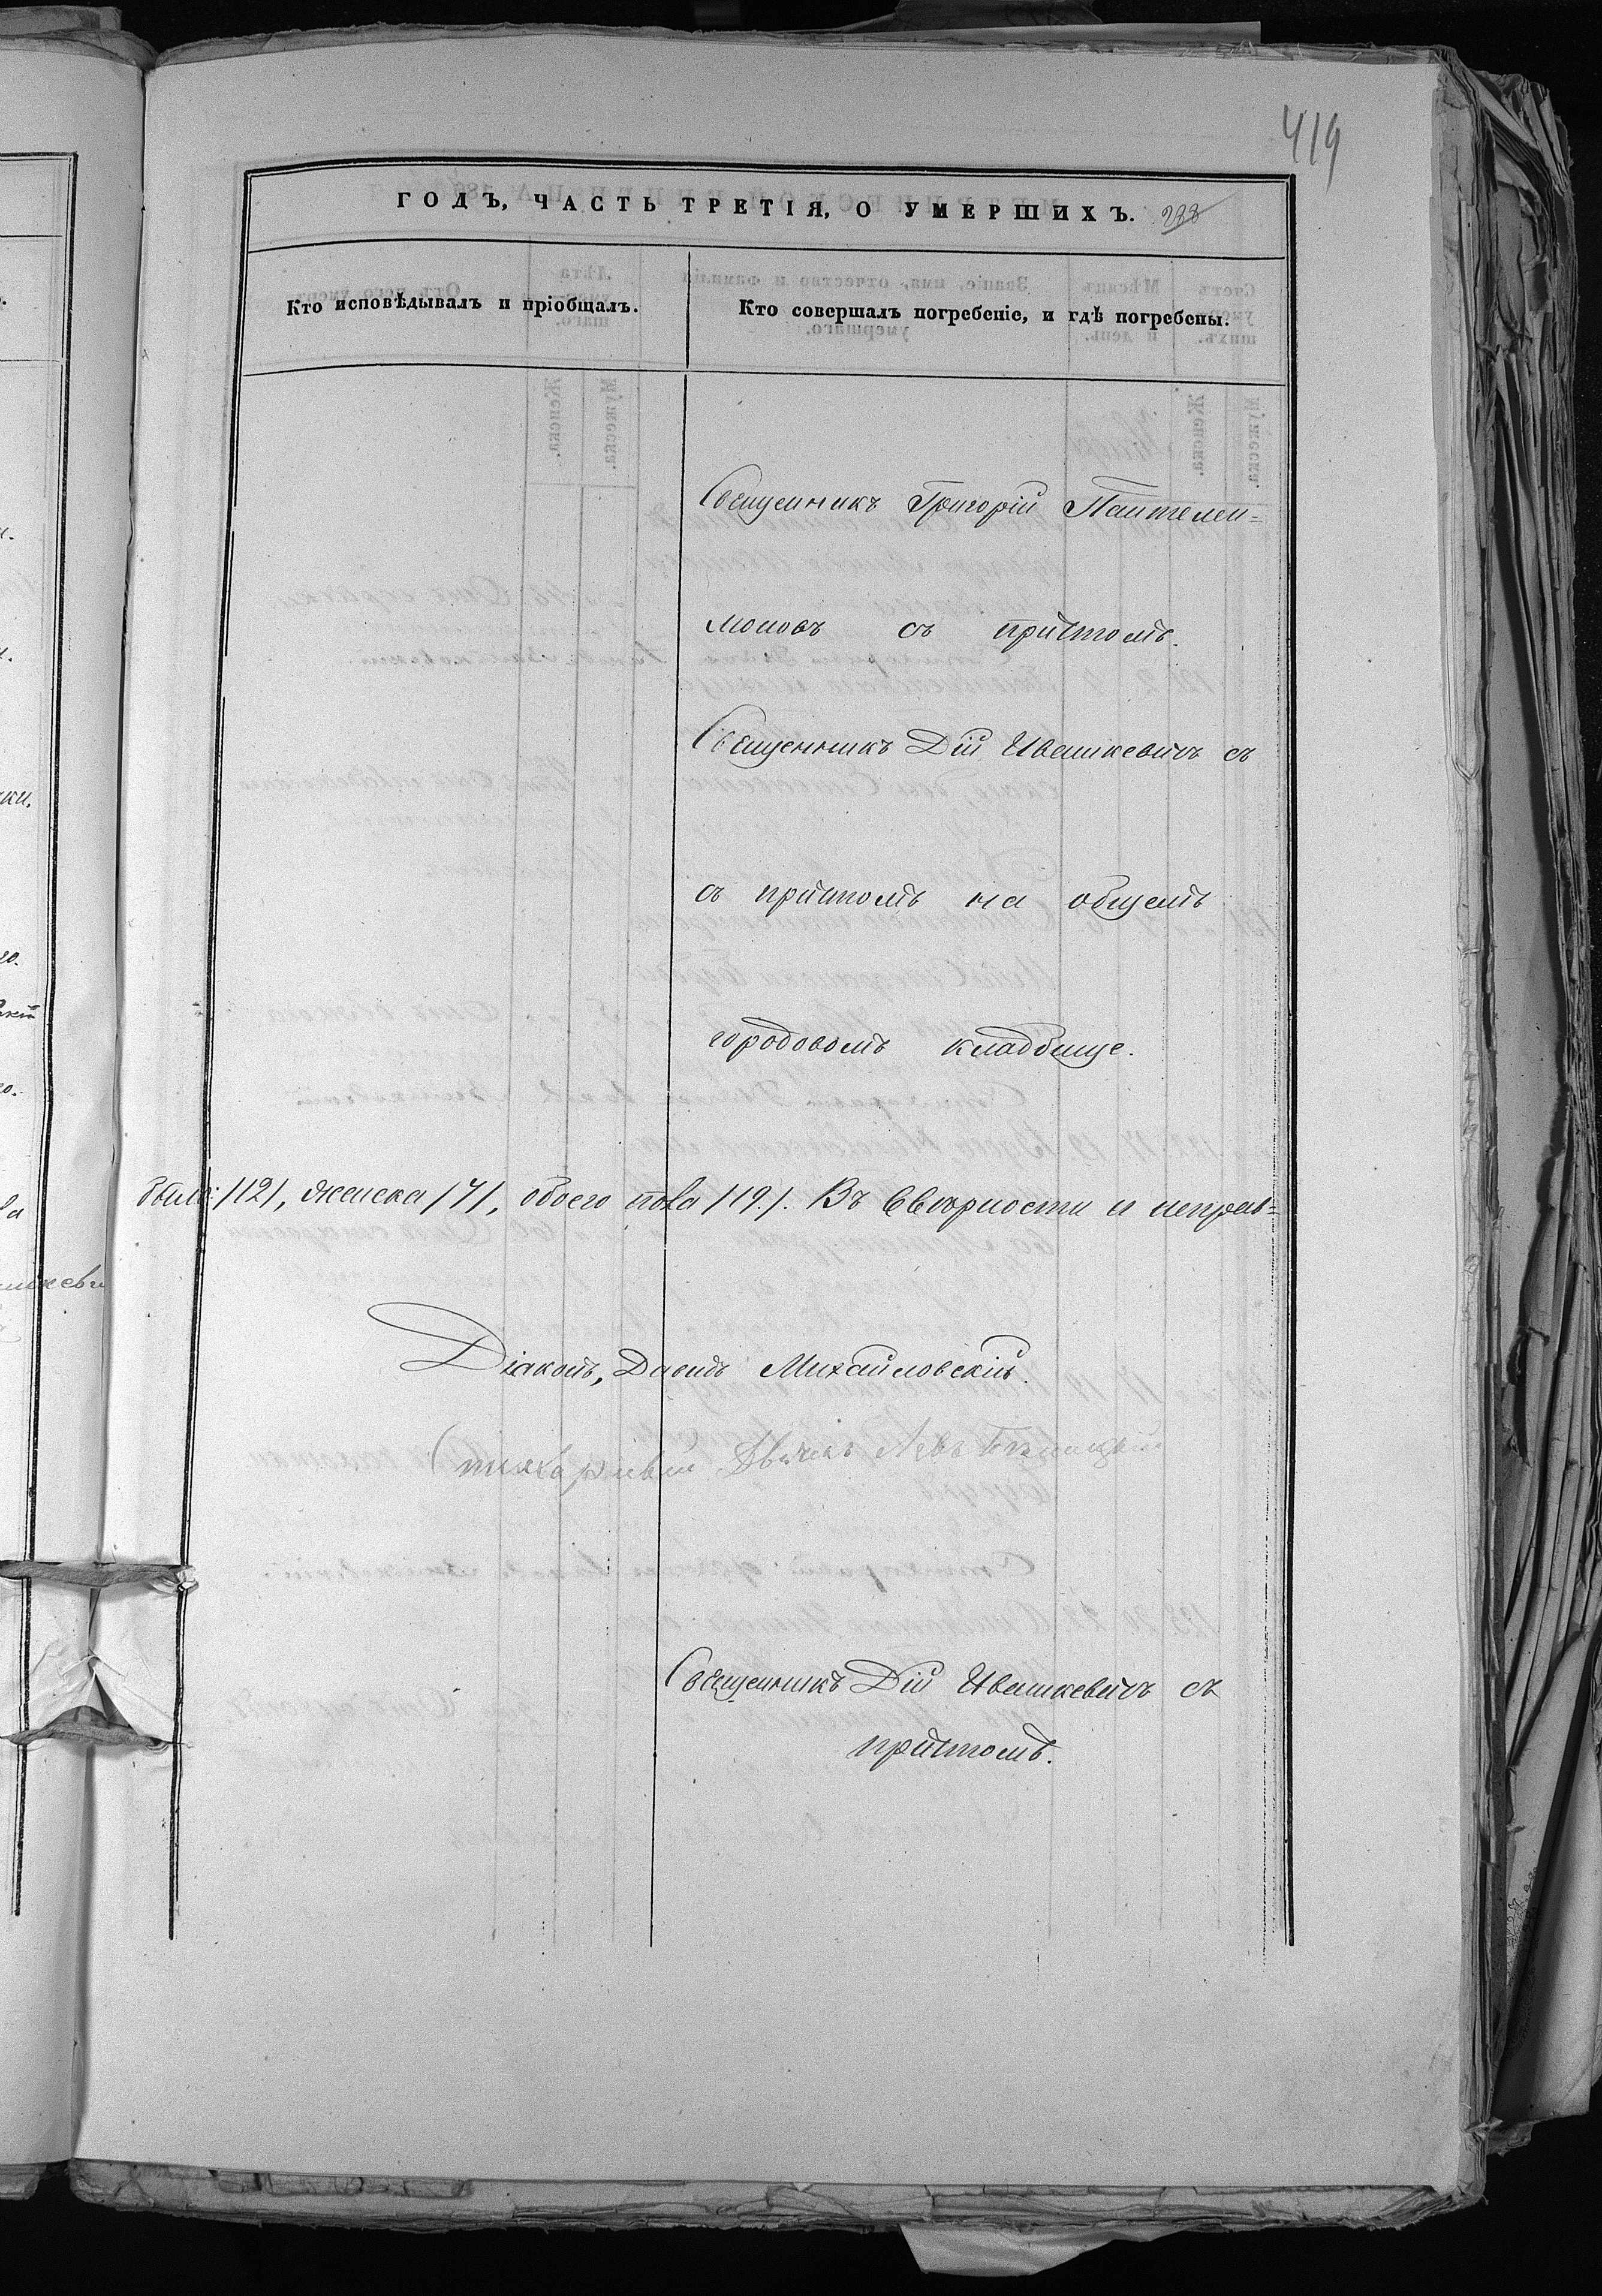 419
ГОДЪ, ЧАСТЬ ТРЕТІЯ, О УМЕРШИХЪ. 288
Кто исповѣдывалъ и пріобщалъ.
Кто совершалъ погребеніе, и гдѣ погребены.
Священникъ Григорій Пантелеи=
моновъ съ причтомъ.
Священникъ Дій Ивашкевичъ съ
съ причтомъ на общемъ
городовомъ кладбище.
было /12/, женска /7/, обоего пола /19/. Въ вѣрности и неправ=
Діаконъ, Давидъ Михайловскій.
Священникъ Дій Ивашкевичъ съ
причтомъ.